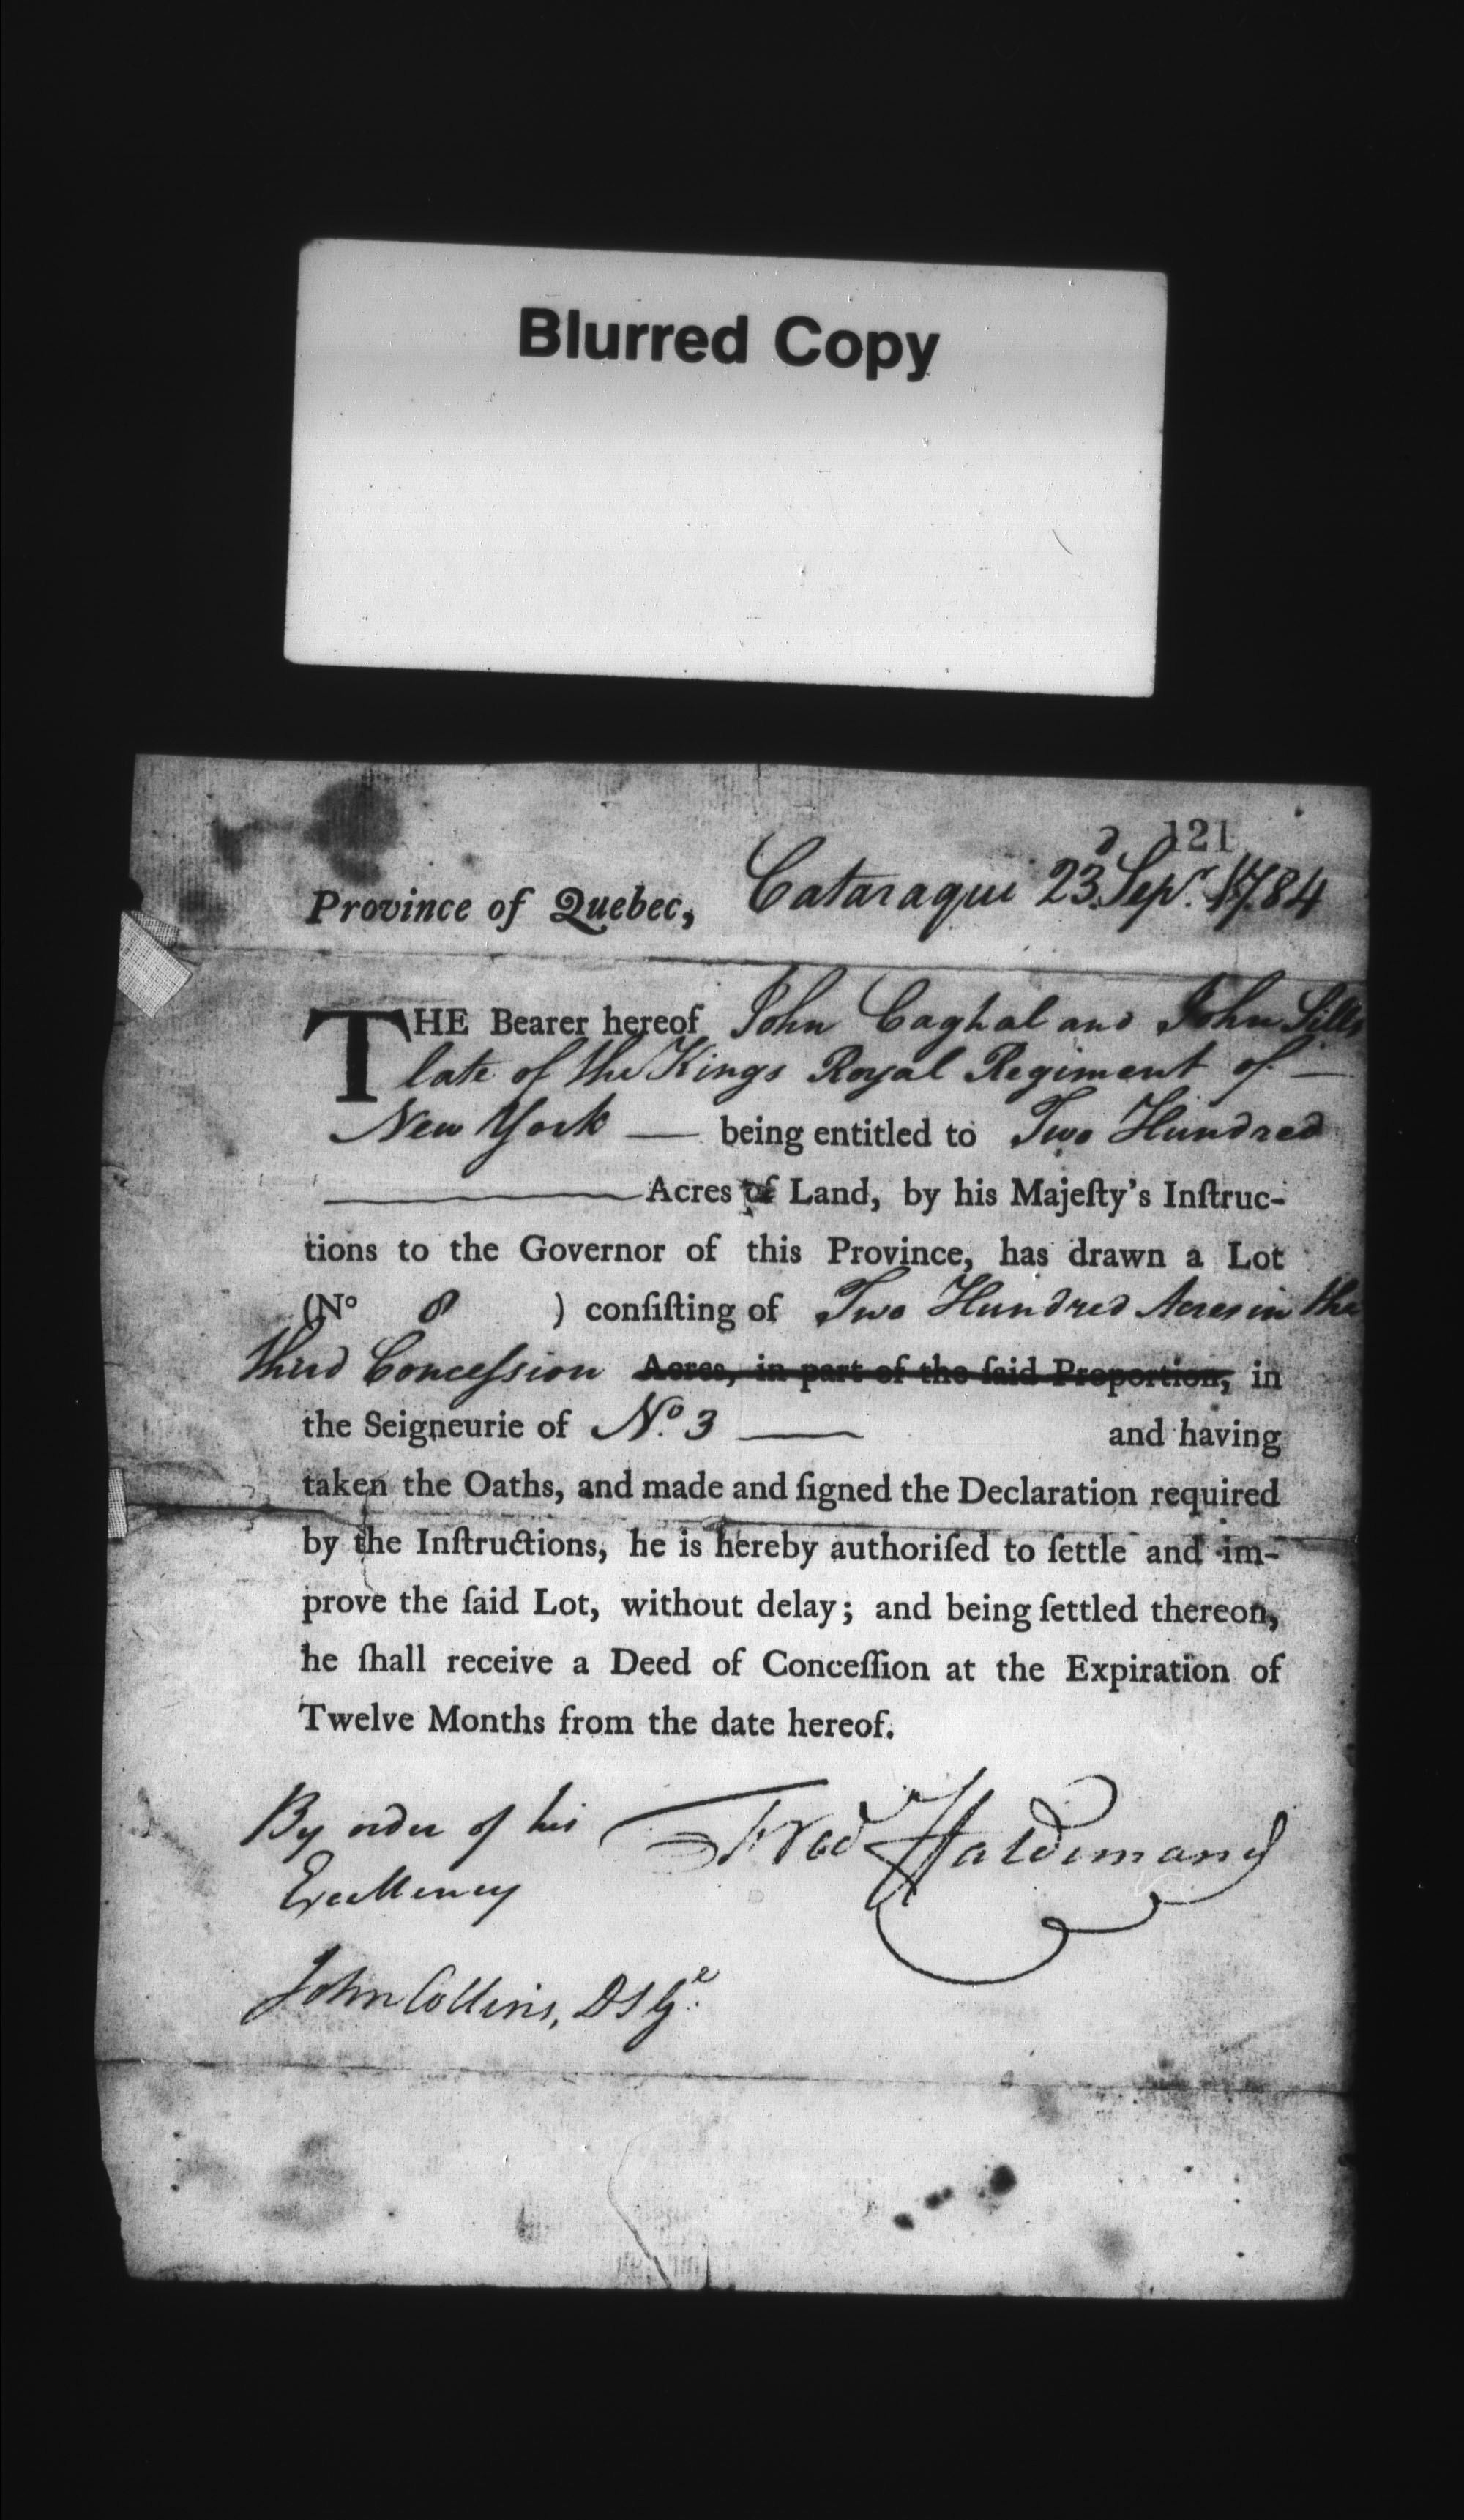 Blurred Copy
121
Province of Quebec, Cataraqui 23d Sepr. 1784
THE Bearer hereof John Caghal and John Sills
late of the Kings Royal Regiment of —
New York — being entitled to Two Hundred
— Acres of Land, by his Majeſty's Inſtruc-
tions to the Governor of this Province, has drawn a Lot
(No 8 ) conſiſting of Two Hundred Acres in the
third Conceſsion Acres, in part of the ſaid Proportion, in
the Seigneurie of No. 3 — and having
taken the Oaths, and made and ſigned the Declaration required
by the Inſtructions, he is hereby authoriſed to ſettle and im-
prove the ſaid Lot, without delay; and being ſettled thereon,
he ſhall receive a Deed of Conceſſion at the Expiration of
Twelve Months from the date hereof.
By order of his Fred Haldimand
Excellency
John Collins, D S Ge.